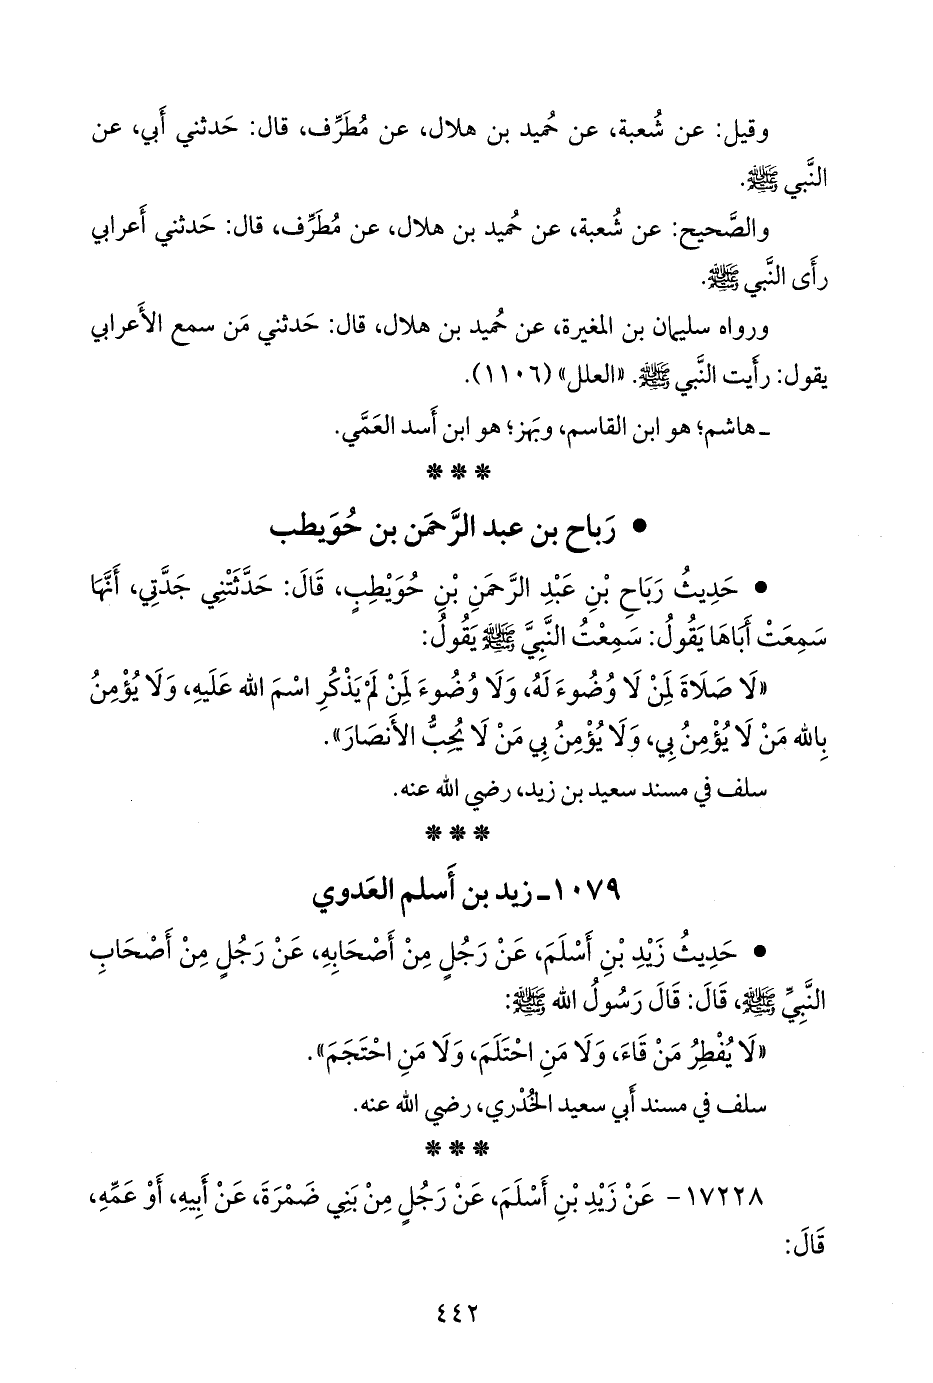 وقيل: عن شُعبة، عن حُميد بن هلال، عن مُطَرِّف، قال: حَدثني أَبي، عن
النَّبي ﷺ.
والصَّحيح: عن شُعبة، عن حُميد بن هلال، عن مُطَرِّف، قال: حَدثني أَعرابي
رأَى النَّبي ﷺ.
ورواه سليمان بن المغيرة، عن حُميد بن هلال، قال: حَدثني مَن سمع الأَعرابي
يقول: رأَيت النَّبي ﷺ. «العلل» (١١٠٦).
ـ هاشم؛ هو ابن القاسم، وبَهز؛ هو ابن أَسد العَمِّي.
* * *
• رَباح بن عبد الرَّحمَن بن حُوَيطب
• حَدِيثُ رَبَاحِ بْنِ عَبْدِ الرَّحمَنِ بْنِ حُوَيْطِبٍ، قَالَ: حَدَّثَتْنِي جَدَّتِي، أَنَّهَا
سَمِعَتْ أَبَاهَا يَقُولُ: سَمِعْتُ النَّبِيَّ ﷺ يَقُولُ:
«لَا صَلَاةَ لِمَنْ لَا وُضُوءَ لَهُ، وَلَا وُضُوءَ لِمَنْ لَمْ يَذْكُرِ اسْمَ الله عَلَيهِ، وَلَا يُؤْمِنُ
بِالله مَنْ لَا يُؤْمِنُ بِي، وَلَا يُؤْمِنُ بِي مَنْ لَا يُحِبُّ الأَنصَارَ».
سلف في مسند سعيد بن زيد، رضي الله عنه.
* * *
١٠٧٩ـ زيد بن أَسلم العَدوي
• حَدِيثُ زَيْدِ بْنِ أَسْلَمَ، عَنْ رَجُلٍ مِنْ أَصْحَابِهِ، عَنْ رَجُلٍ مِنْ أَصْحَابِ
النَّبِيِّ ﷺ، قَالَ: قَالَ رَسُولُ الله ﷺ:
«لَا يُفْطِرُ مَنْ قَاءَ، وَلَا مَنِ احْتَلَمَ، وَلَا مَنِ احْتَجَمَ».
سلف في مسند أَبي سعيد الخُدْري، رضي الله عنه.
* * *
١٧٢٢٨- عَنْ زَيْدِ بْنِ أَسْلَمَ، عَنْ رَجُلٍ مِنْ بَنِي ضَمْرَةَ، عَنْ أَبِيهِ، أَوْ عَمِّهِ،
قَالَ:
٤٤٢